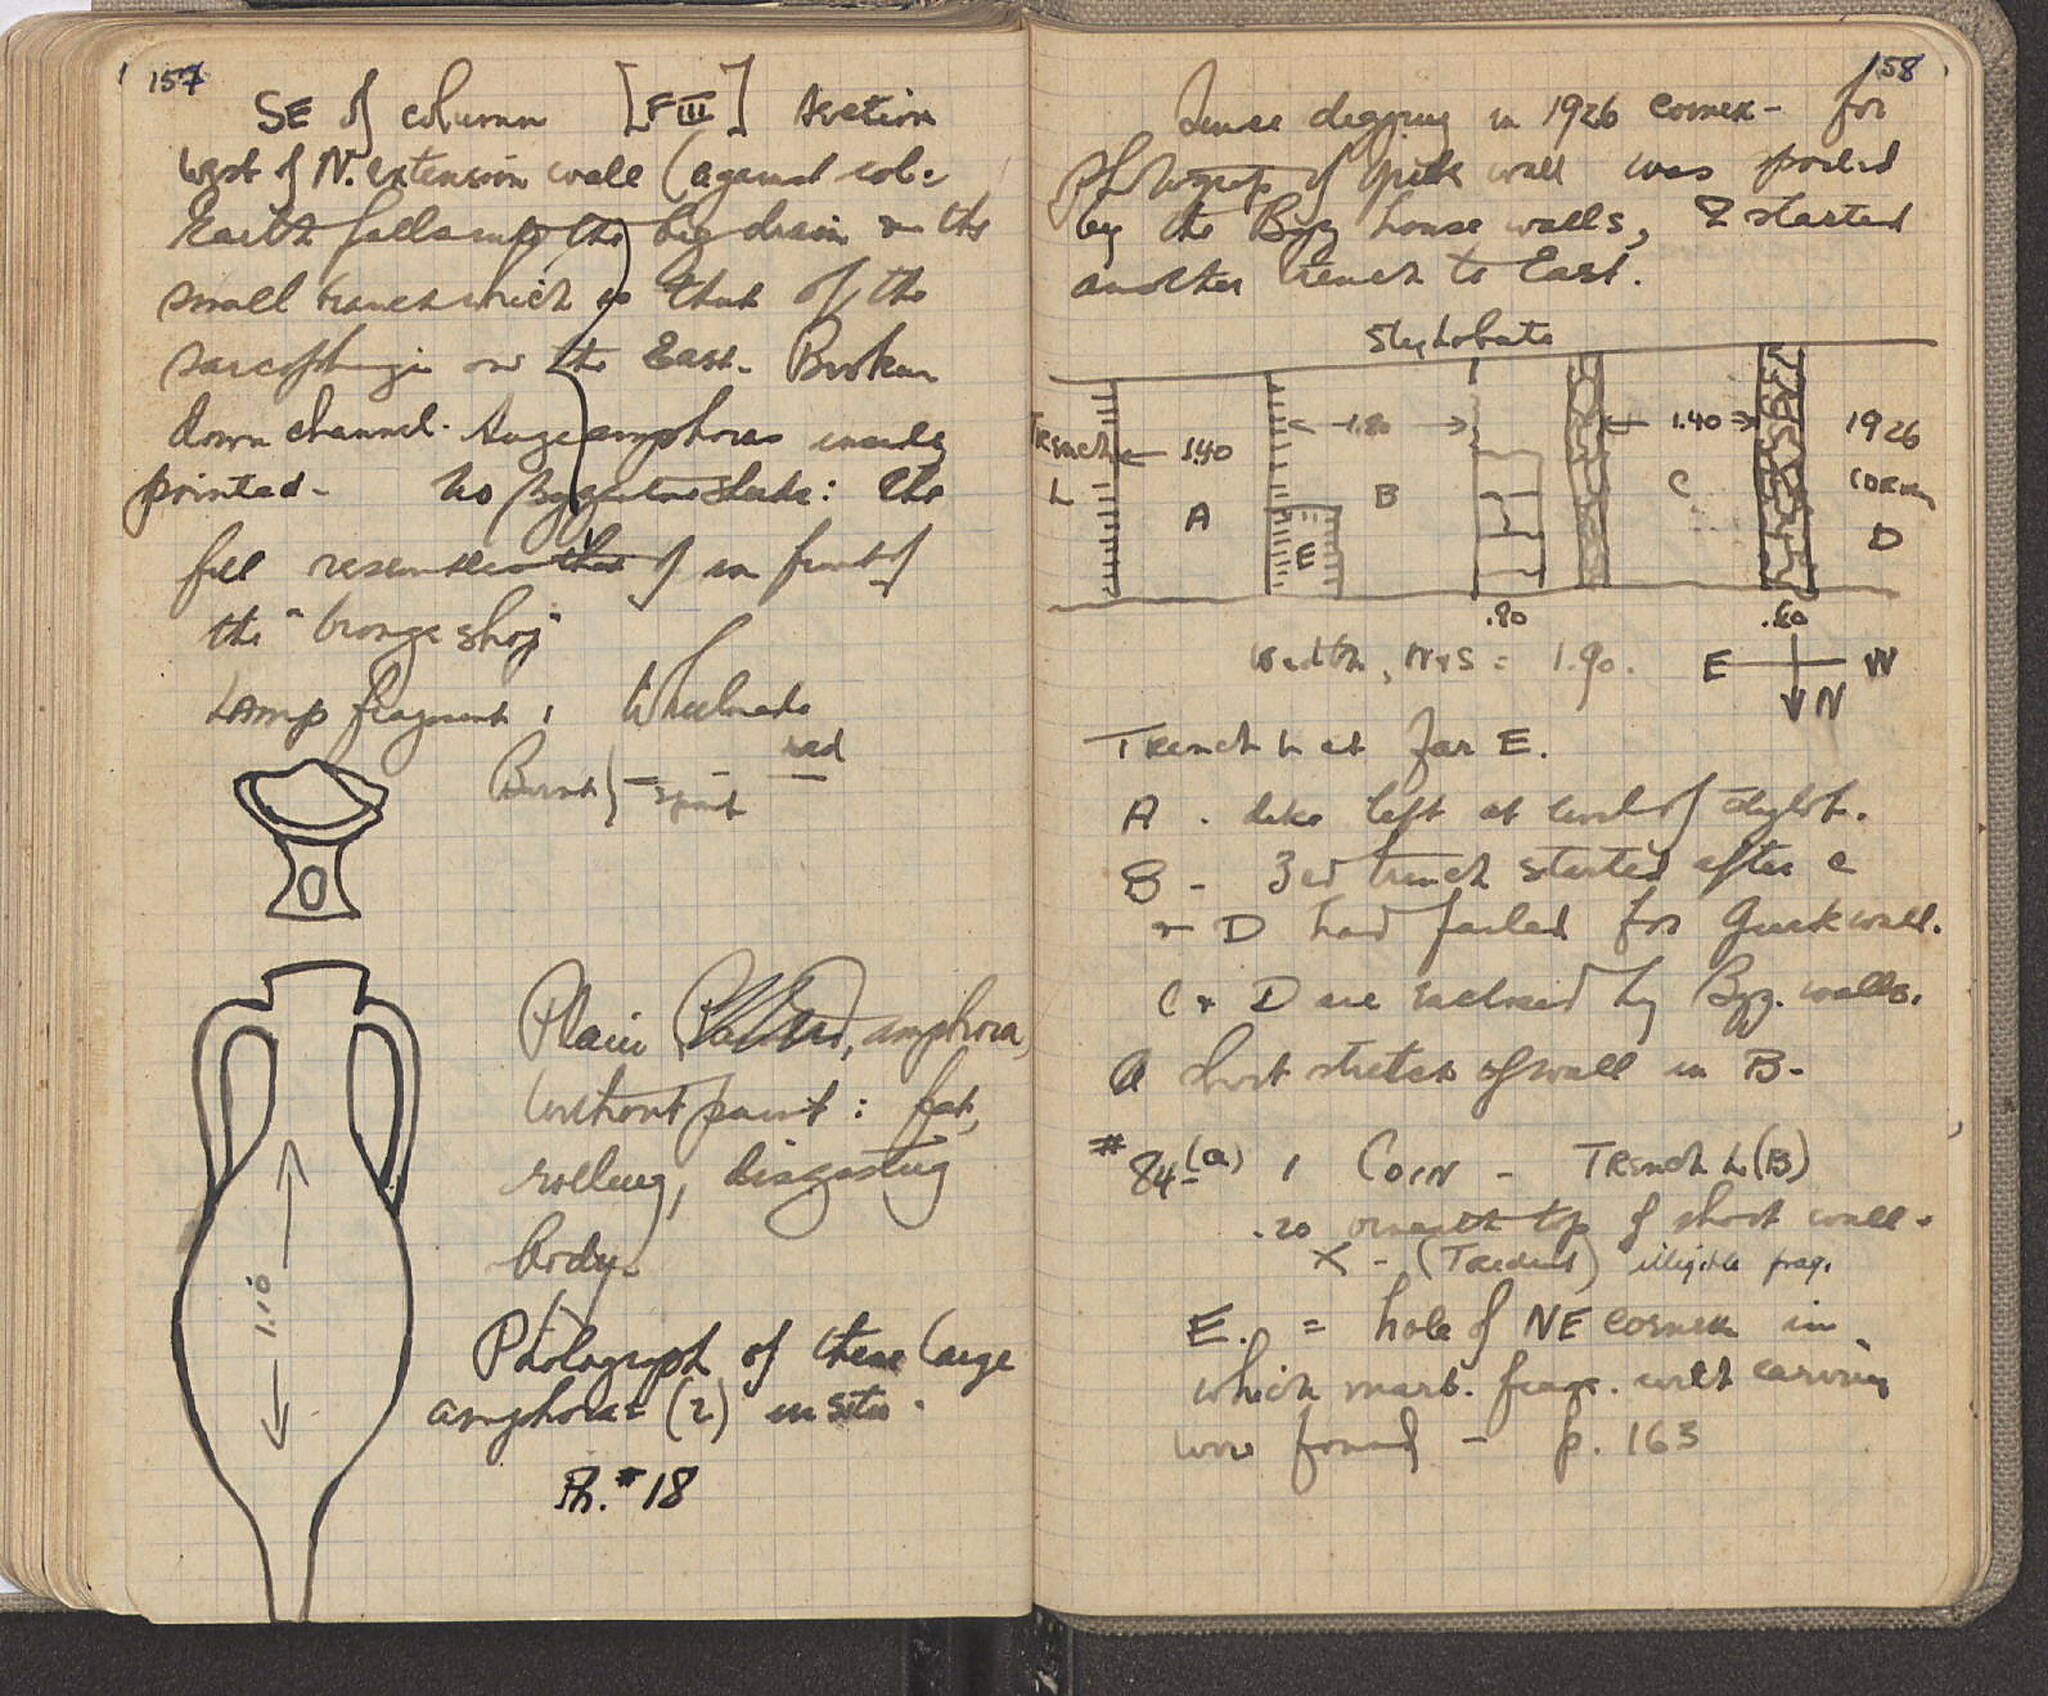 157
SE of column [FIII] Section
West of N. extension wall (against col.
Earth falls into the big drain & the
small branch which is that of the
sarcophagi on the East. Broken
down channel. Huge amphoras mainly
pointed - No Byzantine sherds: the
fill resembles that of in front of
the "bronze shop"
Lamp fragment: Wheelmade
Burnt) - spout - red
Plain amphora,
without paint: fat,
rolling, disgusting
body.
1.10
Photograph of these large
amphorae (2) in situ.
Ph. #18
158
Since digging in 1926 corner - for
photograph of Greek wall was spoiled
by the Byz house walls, I started
another trench to East.
Stylobate
Trench 1.40 1.80 1.40 1926
L A B C corner
E D
.80 .60
Width, N & S = 1.90. E W
N
Trench L at far E.
A. dike left at level of stylob.
B - 3rd trench started after C
& D had failed for Greek wall.
C & D are enclosed by Byz. walls.
A short stretch of wall in B.
#84(a) 1 Coin - Trench L (B)
.20 beneath top of short wall.
X - (Trident) illegible frag.
E. = hole of NE corner in
which marb. frags. with carving
were found - p. 163